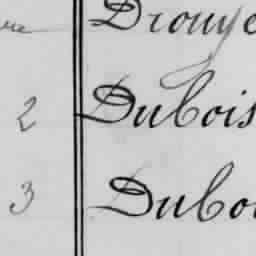 Drouye
2 Dubois
3 Dubo